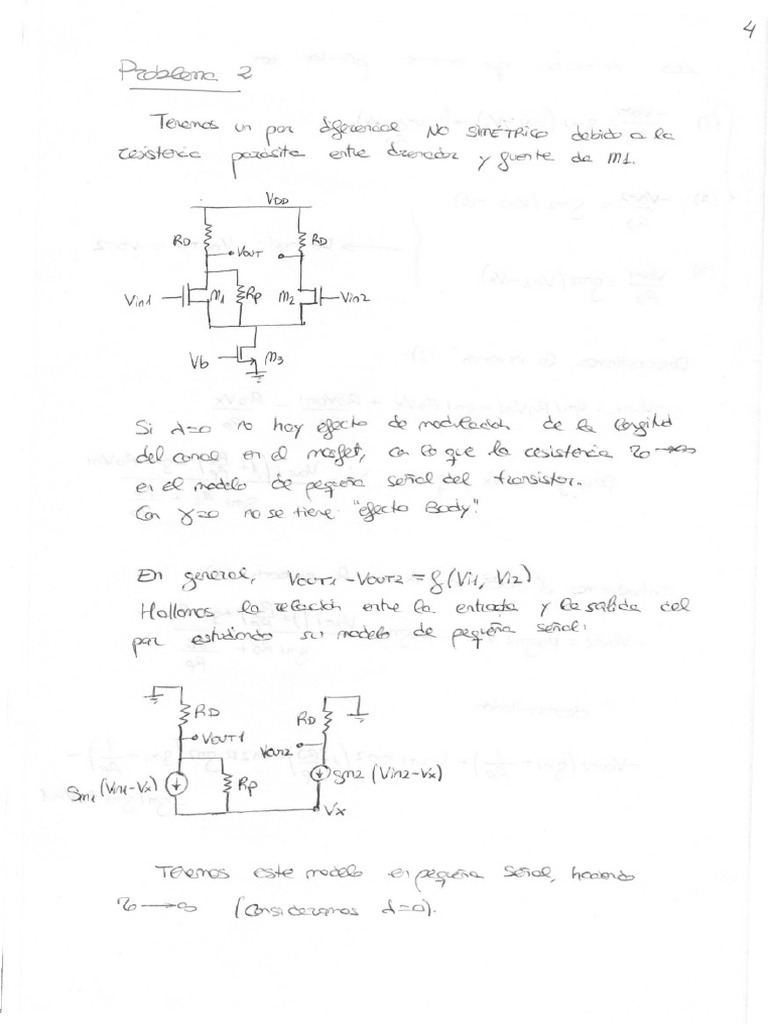 4
Problema 2
Tenemos un par diferencial NO SIMÉTRICO debido a la
resistencia parásita entre drenador y fuente de M1.
VDD
RD
VOUT
RD
Vin1
M1
RP
M2
Vin2
Vb
M3
Si λ=0 no hay efecto de modulación de la longitud
del canal en el mosfet, con lo que la resistencia ro → ∞
en el modelo de pequeña señal del transistor.
Con γ=0 no se tiene "efecto Body".
En general, VOUT1 - VOUT2 = f(Vi1, Vi2)
Hallamos la relación entre la entrada y la salida del
par estudiando su modelo de pequeña señal:
RD
VOUT1
RD
VOUT2
gm1 (Vin1-Vx)
RP
gm2 (Vin2-Vx)
Vx
Tenemos este modelo en pequeña señal, haciendo
ro → ∞ (consideramos λ=0).